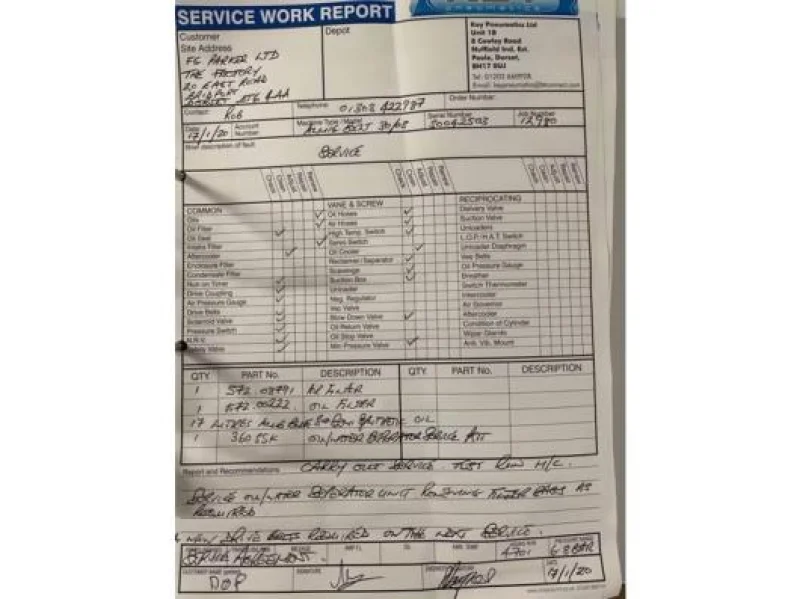 SERVICE WORK REPORT
Customer
Site Address
FG PARKER LTD
THE FACTORY
20 EAST ROAD
BRIDPORT
Depot
Kay Pneumatics Ltd
Unit 1B
8 Cowley Road
Nuffield Ind. Est.
Poole, Dorset,
BH17 0UJ
Contact: ROB
Telephone: 01308 422987
Order Number:
Date 17/1/20
Account Number
Machine Type / Model
Serial Number
Job Number
12980
Brief description of fault
SERVICE
Check Clean Adjust Repair Renew
Check Clean Adjust Repair Renew
Check Clean Adjust Repair Renew
COMMON
Oils
Oil Filter
Oil Seal
Intake Filter
Aftercooler
Enclosure Filter
Condensate Filter
Run on Timer
Drive Coupling
Air Pressure Gauge
Drive Belts
Solenoid Valve
Pressure Switch
N.R.V.
Safety Valve
VANE & SCREW
Oil Hoses
Air Hoses
High Temp. Switch
Servo Switch
Oil Cooler
Reclaimer / Separator
Scavenge
Suction Box
Unloader
Neg. Regulator
Vac Valve
Blow Down Valve
Oil Return Valve
Oil Stop Valve
Min Pressure Valve
RECIPROCATING
Delivery Valve
Suction Valve
Unloaders
L.O.P./H.A.T. Switch
Unloader Diaphragm
Vee Belts
Oil Pressure Gauge
Breather
Switch Thermometer
Intercooler
Air Governor
Aftercooler
Condition of Cylinder
Wiper Glands
Anti. Vib. Mount
QTY PART No. DESCRIPTION QTY. PART No. DESCRIPTION
1 AIR FILTER
1 OIL FILTER
17 LITRES OIL
1 360SSK OIL/WATER SEPERATOR SERVICE KIT
Report and Recommendations CARRY OUT SERVICE. TEST RUN M/C.
SERVICE OIL/WATER SEPERATOR UNIT RENEWING FILTER BAGS AS
REQUIRED
NEW DRIVE BELTS REQUIRED ON THE NEXT SERVICE.
AGREEMENT.
HOURS RUN
4701
PRESSURE RANGE
6-8 BAR
CUSTOMER NAME
SIGNATURE
DATE
17/1/20